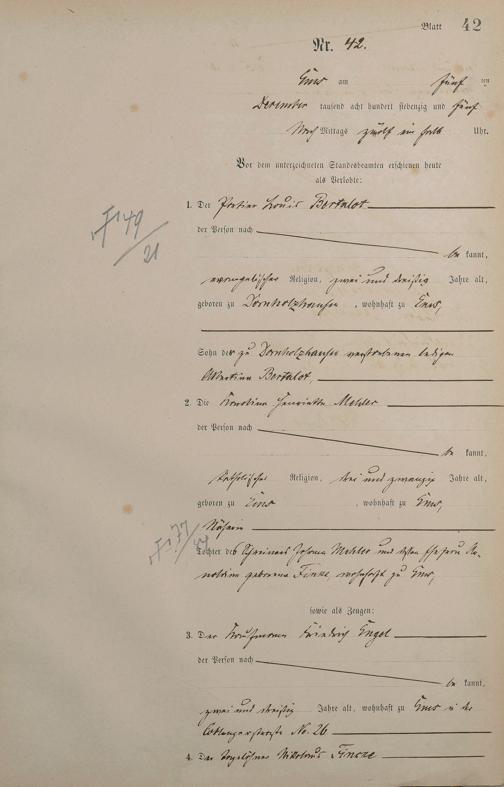 Blatt 42
Nr. 42.
Ems am fünf ten
Dezember tausend acht hundert siebenzig und fünf
Nach Mittags zwölf ein halb Uhr.
Vor dem unterzeichneten Standesbeamten erschienen heute
als Verlobte:
1. Der Louis Bertalot
der Person nach
be kannt,
evangelischer Religion, zwei und dreißig Jahre alt,
geboren zu Dornholzhausen, wohnhaft zu Ems,
Sohn der zu Dornholzhausen verstorbenen ledigen
Albertine Bertalot,
2. Die Karoline Henriette Mehler
der Person nach
be kannt,
katholischer Religion, drei und zwanzig Jahre alt,
geboren zu Ems, wohnhaft zu Ems,
Näherin
Tochter des Johann Mehler und dessen Ehefrau
geborene Finze, wohnhaft zu Ems,
sowie als Zeugen:
3. Der Kaufmann Friedrich Engel
der Person nach
be kannt,
zwei und dreißig Jahre alt, wohnhaft zu Ems in der
Coblenzerstraße No. 26
4. Der Tagelöhner Nikolaus Finze